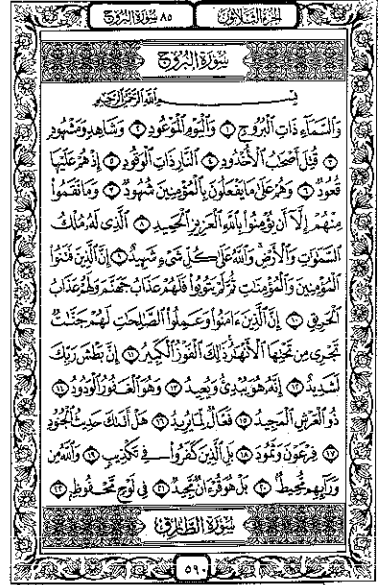 الجزء الثلاثون
٨٥ سورة البروج
سُورَةُ البُرُوجِ
بِسْمِ اللَّهِ الرَّحْمَٰنِ الرَّحِيمِ
وَالسَّمَاءِ ذَاتِ الْبُرُوجِ ١ وَالْيَوْمِ الْمَوْعُودِ ٢ وَشَاهِدٍ وَمَشْهُودٍ
٣ قُتِلَ أَصْحَابُ الْأُخْدُودِ ٤ النَّارِ ذَاتِ الْوَقُودِ ٥ إِذْ هُمْ عَلَيْهَا
قُعُودٌ ٦ وَهُمْ عَلَىٰ مَا يَفْعَلُونَ بِالْمُؤْمِنِينَ شُهُودٌ ٧ وَمَا نَقَمُوا
مِنْهُمْ إِلَّا أَن يُؤْمِنُوا بِاللَّهِ الْعَزِيزِ الْحَمِيدِ ٨ الَّذِي لَهُ مُلْكُ
السَّمَاوَاتِ وَالْأَرْضِ وَاللَّهُ عَلَىٰ كُلِّ شَيْءٍ شَهِيدٌ ٩ إِنَّ الَّذِينَ فَتَنُوا
الْمُؤْمِنِينَ وَالْمُؤْمِنَاتِ ثُمَّ لَمْ يَتُوبُوا فَلَهُمْ عَذَابُ جَهَنَّمَ وَلَهُمْ عَذَابُ
الْحَرِيقِ ١٠ إِنَّ الَّذِينَ آمَنُوا وَعَمِلُوا الصَّالِحَاتِ لَهُمْ جَنَّاتٌ
تَجْرِي مِن تَحْتِهَا الْأَنْهَارُ ذَٰلِكَ الْفَوْزُ الْكَبِيرُ ١١ إِنَّ بَطْشَ رَبِّكَ
لَشَدِيدٌ ١٢ إِنَّهُ هُوَ يُبْدِئُ وَيُعِيدُ ١٣ وَهُوَ الْغَفُورُ الْوَدُودُ ١٤
ذُو الْعَرْشِ الْمَجِيدُ ١٥ فَعَّالٌ لِّمَا يُرِيدُ ١٦ هَلْ أَتَاكَ حَدِيثُ الْجُنُودِ
١٧ فِرْعَوْنَ وَثَمُودَ ١٨ بَلِ الَّذِينَ كَفَرُوا فِي تَكْذِيبٍ ١٩ وَاللَّهُ مِن
وَرَائِهِم مُّحِيطٌ ٢٠ بَلْ هُوَ قُرْآنٌ مَّجِيدٌ ٢١ فِي لَوْحٍ مَّحْفُوظٍ ٢٢
سُورَةُ الطَّارِقِ
٥٩٠